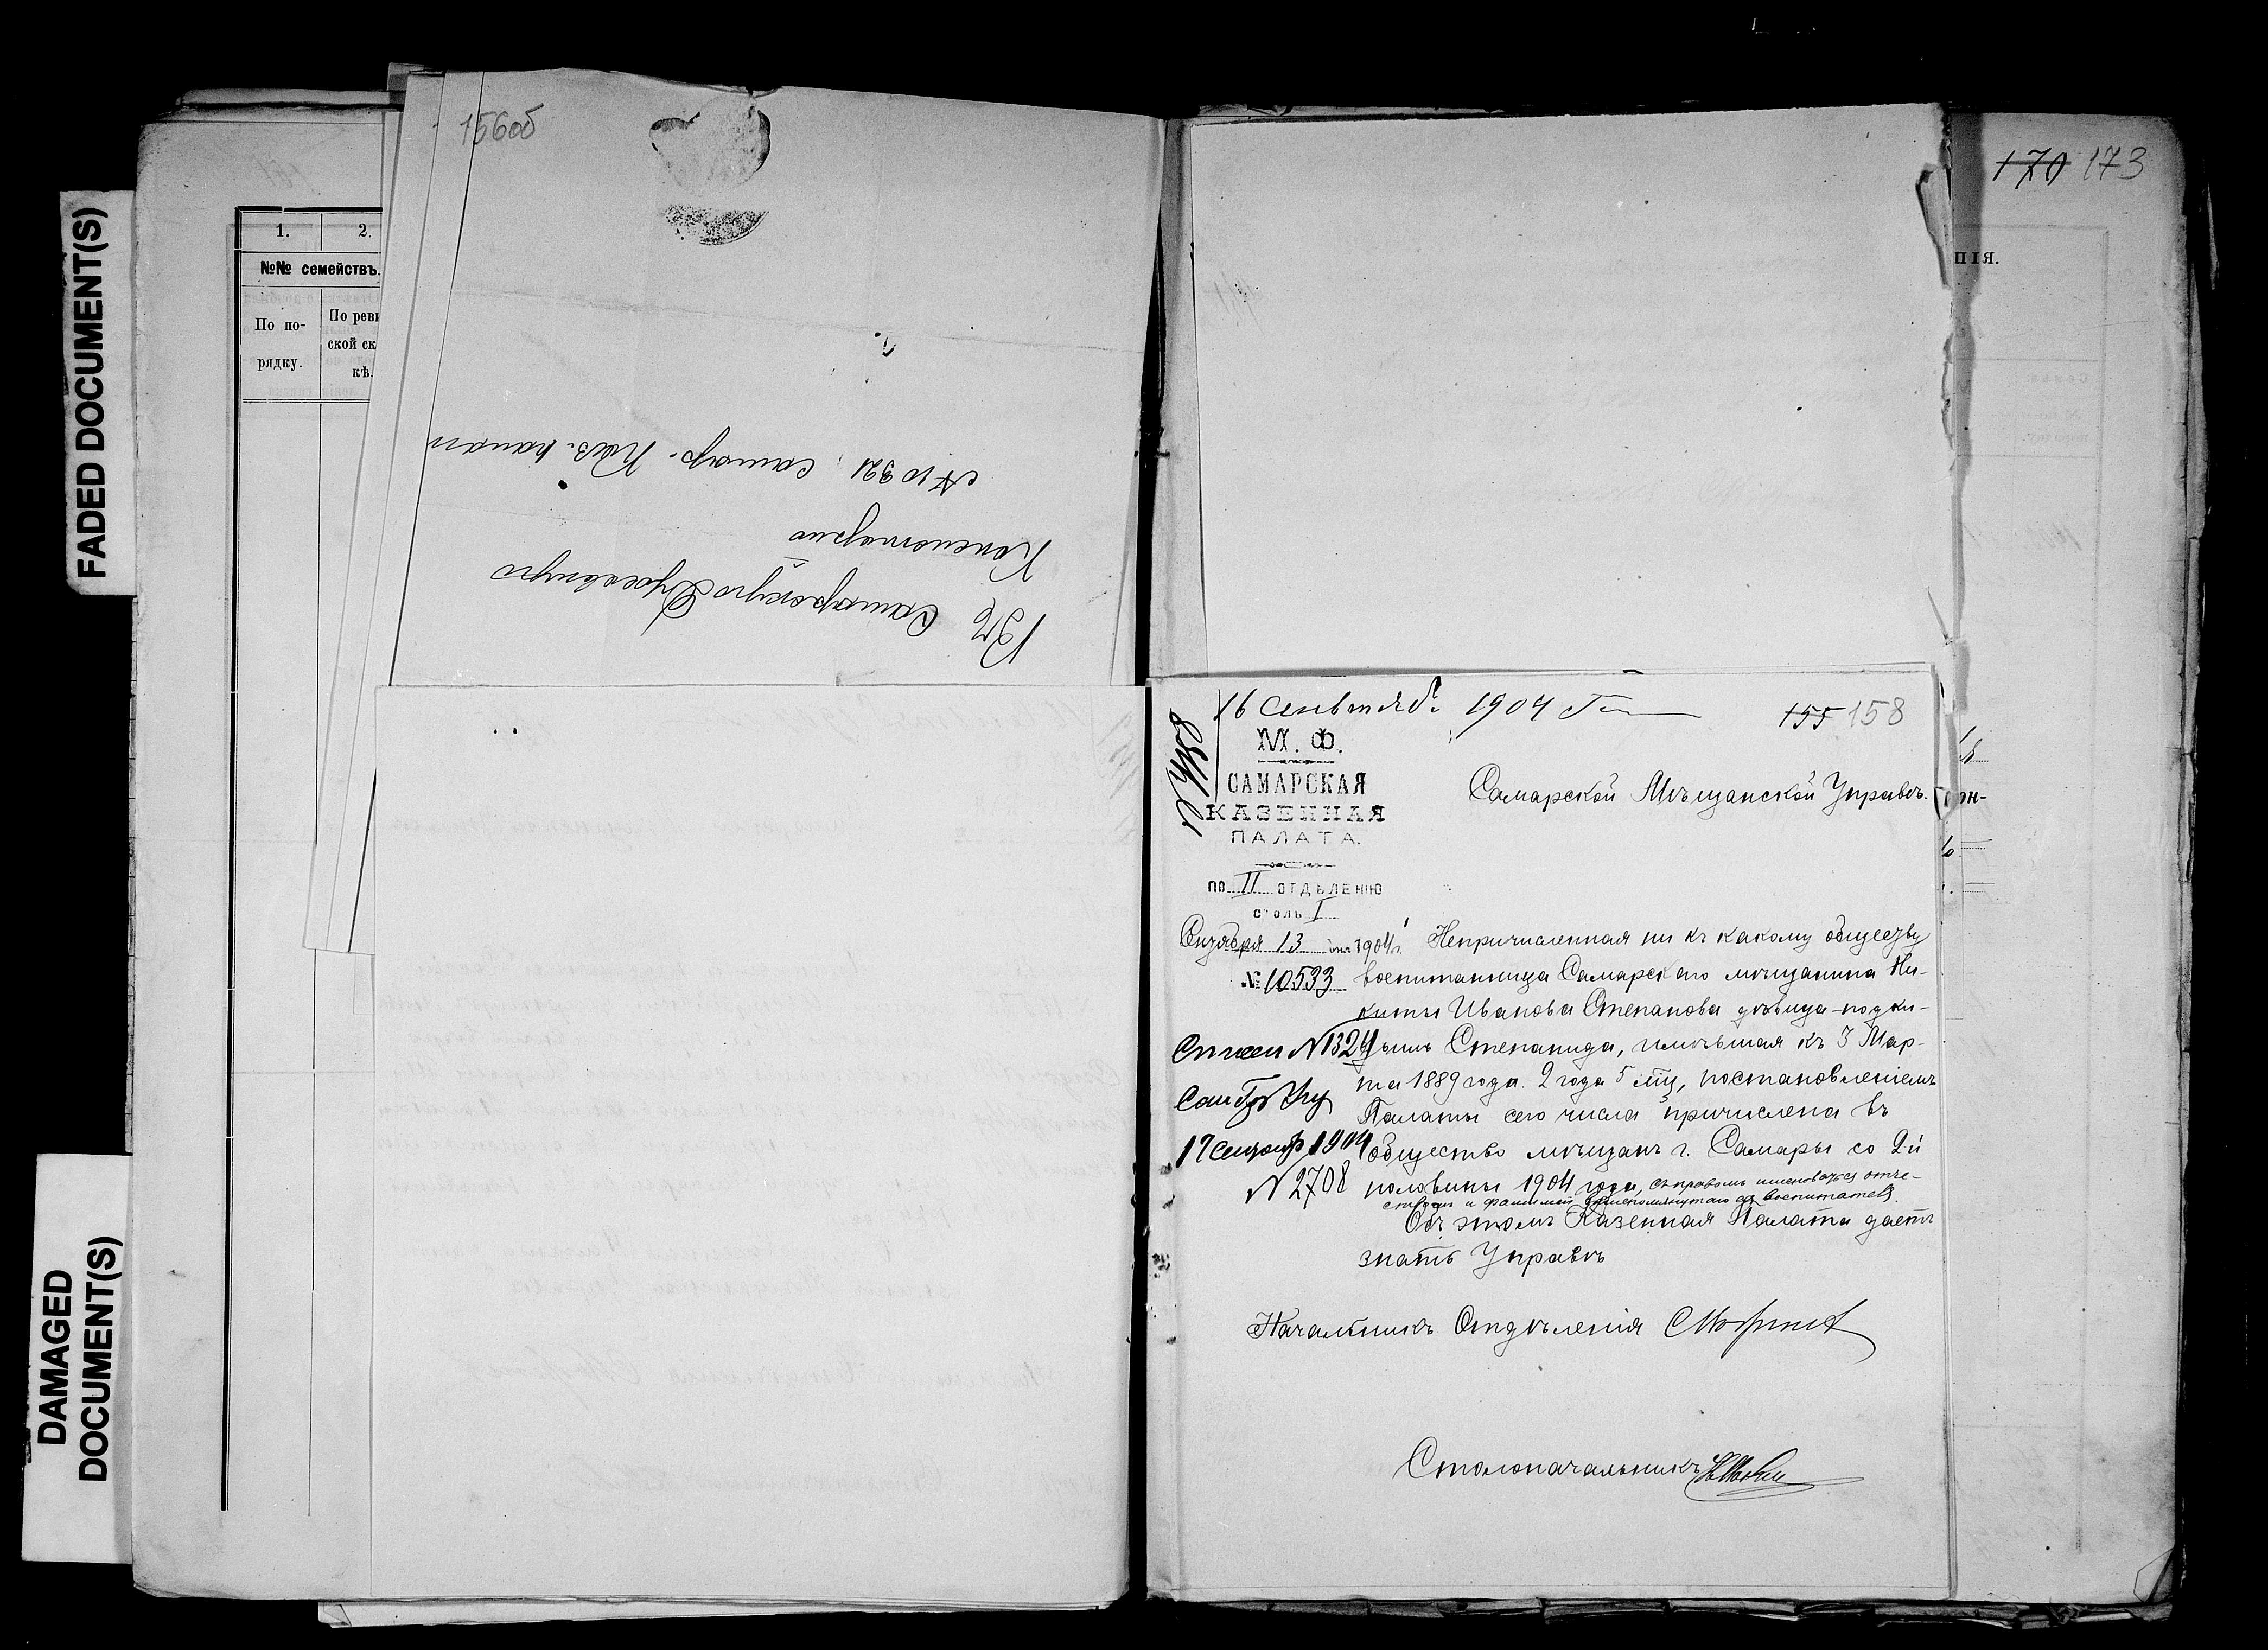 FADED DOCUMENT(S)
DAMAGED
DOCUMENT(S)
1.
2.
№№ семействъ.
По по-
рядку.
По реви
ской ск
кѣ.
156об
Въ Самарскую Духовную
Консисторію
№ 10321 самар. Каз. палат
170 173
ПІЯ.
16 Сентяб. 1904 г
155 158
М. Ф.
САМАРСКАЯ
КАЗЕННАЯ
ПАЛАТА.
ПО II ОТДѢЛЕНІЮ
СТОЛЪ I
Сентября 13 дня 1904 г.
№ 10533
Самарской Мѣщанской Управѣ.
Непричисленная ни къ какому обществу
воспитанница Самарского мѣщанина Ни-
киты Иванова Степанова дѣвица-подки-
дышъ Степанида, имѣвшая къ 3 Мар-
та 1889 года 2 года 5 мц, постановленіемъ
Палаты сего числа причислена въ
общество мѣщанъ г. Самары со 2-й
половины 1904 года, съ правомъ именоваться отче-
ствомъ и фамиліей вышепомянутаго ея воспитателя.
Объ этомъ Казенная Палата даетъ
знать Управѣ
№ 1324
17 Сентяб 1904
№ 2708
Начальникъ Отдѣленія
Столоначальникъ